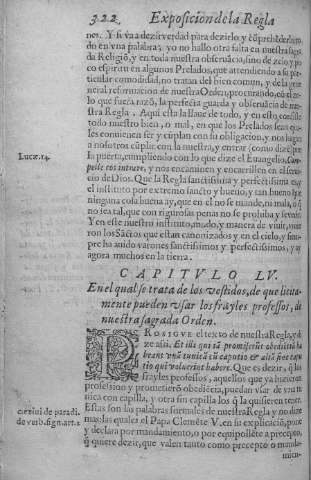 322. Exposicion de la Regla
nes. Y si va a dezir verdad para dezirlo y cõprehẽderlo to-
do en vna palabra: yo no hallo otra falta en nuestra sagra
da Religiõ, y en toda nuestra obseruãcia, sino de zelo, y po
co espiritu en algunos Prelados, que attendiendo a su par
ticular comodidad, no tratan del bien comun, y de la ge-
neral reformacion de nuestra Orden, procurando, cõ
lo que fuera razõ, la perfecta guarda y obseruãcia de nue
stra Regla. Aqui esta la llaue de todo, y en esto consiste
todo nuestro bien, o mal, en que los Prelados sean
les conuienen ser y cũplan con su obligacion, y nos hagan
a nosotros cũplir con la nuestra, y entrar (como dizẽ) por
la puerta, cumpliendo con lo que dize el Euangelio, Com-
Lucæ. 14.
pelle eos intrare, y nos encaminen y encarrillen en el serui
cio de Dios. Que la Regla sanctissima y perfectissima es,
el instituto por extremo sancto y bueno, y tan bueno que
ninguna cosa buena ay, que en el no se mande, ni mala, o
no sea tal, que con rigurosas penas no se prohiba y
Y en este nuestro instituto, modo, y manera de viuir, viuie
ron los Sãctos que estan canonizados y en el cielo, y siem-
pre ha auido varones sanctissimos y perfectissimos, y ay
agora muchos en la tierra.
CAPITVLO LV.
En el qual se trata de los vestidos, de que licita-
mente pueden vsar los frayles professos, de
nuestra sagrada Orden.
PROSIGVE el texto de nuestra Regla, y
ze assi. Et illi qui iã promiserũt obediẽtiã ha
beant vnã tunicã cũ caputio & aliã sine capu
tio qui voluerint habere. Que es dezir, q̃ los
frayles professos, aquellos que ya hizieron
profession y prometierõ obediẽcia, puedan vsar de vna tu
nica con capilla, y otra sin capilla los q̃ la quisieren tener.
Estas son las palabras formales de nuestra Regla y no dize
mas: las quales el Papa Clemẽte V. en su explicaciõ, pone
Exiui de paradi.
de verb. sign. art. 2
y declara por mandamiento, o por equipollẽte a precepto,
q̃ quiere dezir, que valen tanto como precepto o manda-
mien-